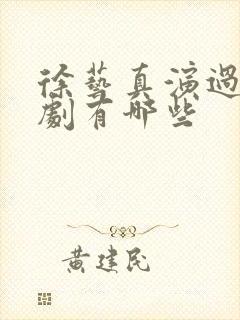 徐藝真演過
劇有哪些
黃建民